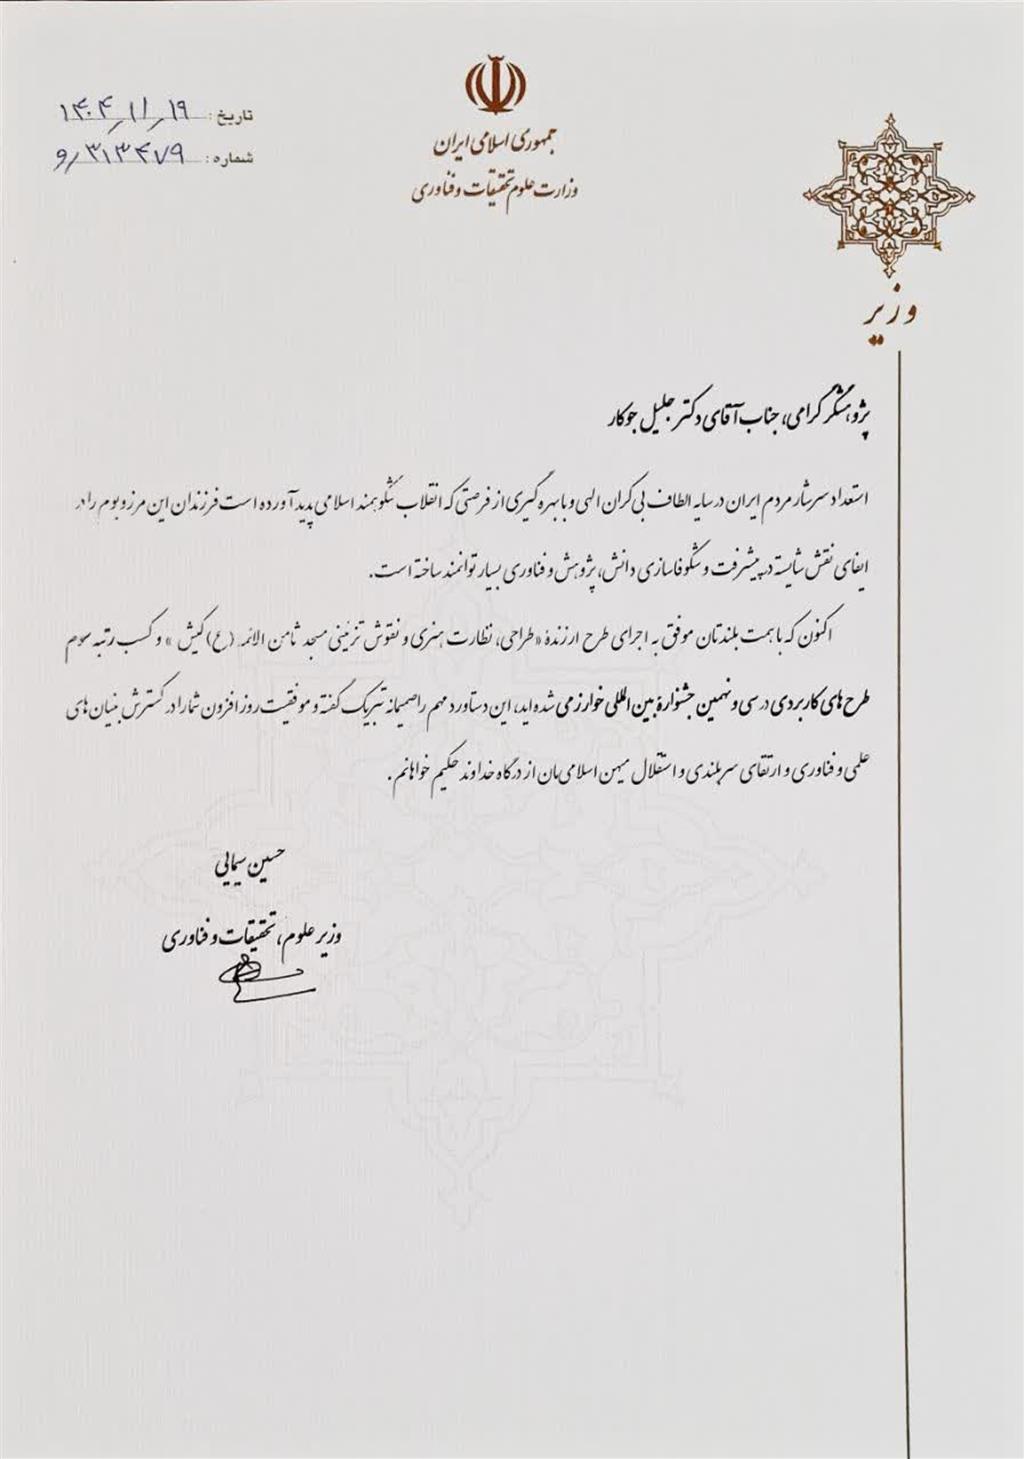 جمهوری اسلامی ایران
وزارت علوم تحقیقات و فناوری
تاریخ: ۱۴۰۴/۱۱/۱۹
شماره: ۳۱۳۴۷۹/و
وزیر
پژوهشگر گرامی، جناب آقای دکتر جلیل جوکار
استعداد سرشار مردم ایران در سایه الطاف بی‌کران الهی و با بهره‌گیری از فرصتی که انقلاب شکوهمند اسلامی پدید آورده است فرزندان این مرز و بوم را در
ایفای نقش شایسته در پیشرفت و شکوفاسازی دانش، پژوهش و فناوری بسیار توانمند ساخته است.
اکنون که با همت بلندتان موفق به اجرای طرح ارزندهٔ «طراحی، نظارت هنری و نقوش تزئینی مسجد ثامن الائمه (ع) کیش » و کسب رتبه سوم
طرح‌های کاربردی در سی و نهمین جشنوارهٔ بین‌المللی خوارزمی شده‌اید، این دستاورد مهم را صمیمانه تبریک گفته و موفقیت روزافزون شما را در گسترش بنیان‌های
علمی و فناوری و ارتقای سربلندی و استقلال میهن اسلامی‌مان از درگاه خداوند حکیم خواهانم.
حسین سیمایی
وزیر علوم، تحقیقات و فناوری